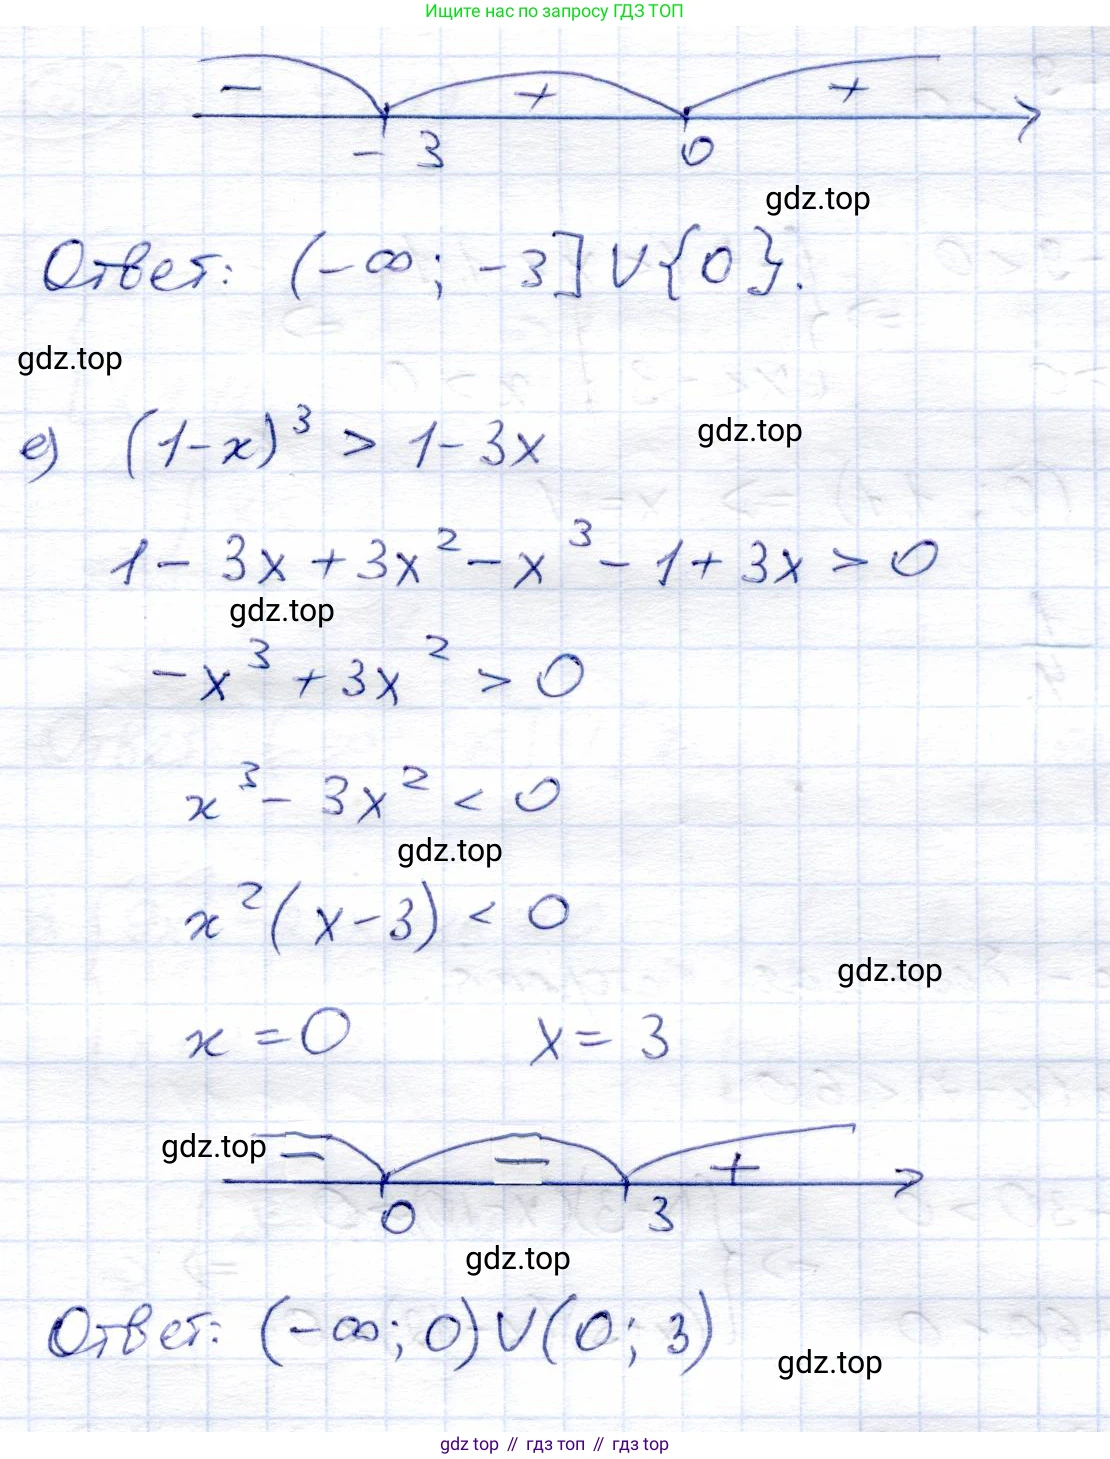 Ищите нас по запросу ГДЗ ТОП
− + +
− 3 0
gdz.top
Ответ: (−∞; −3] ∪ {0}.
gdz.top
е) (1−x)³ > 1−3x
gdz.top
1 − 3x + 3x² − x³ − 1 + 3x > 0
gdz.top
−x³ + 3x² > 0
x³ − 3x² < 0
gdz.top
x² (x−3) < 0
gdz.top
x = 0 x = 3
gdz.top
− − +
0 3
gdz.top
Ответ: (−∞; 0) ∪ (0; 3)
gdz.top
gdz top // гдз топ // гдз top